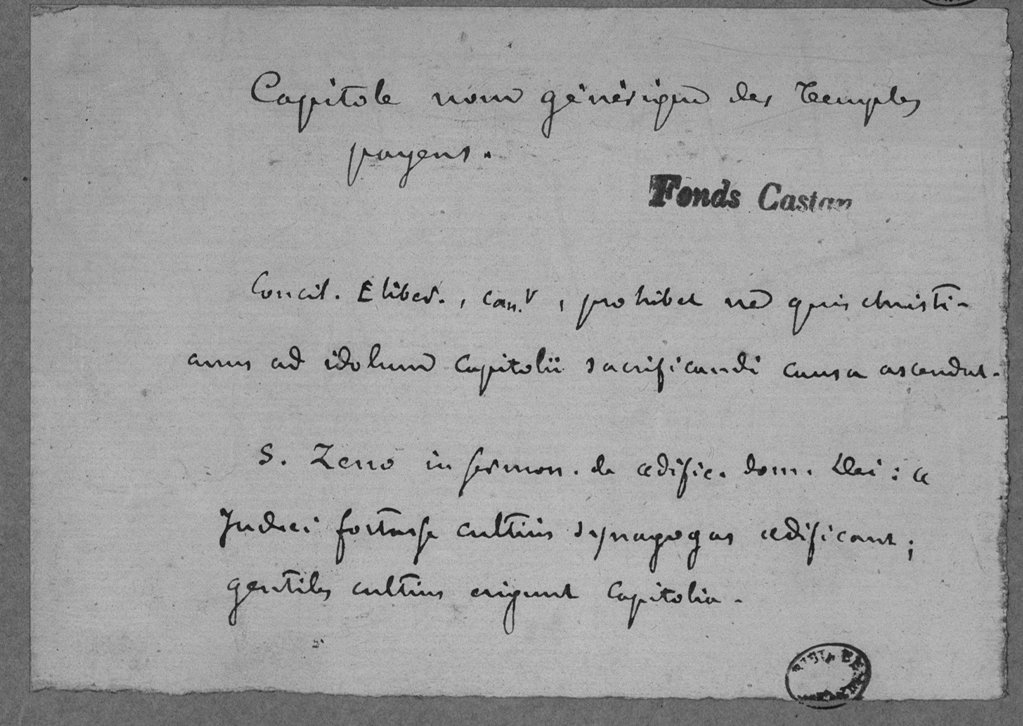 Capitole nom générique des Temples
payens.
Fonds Castan
Concil. Eliber., can. V, prohibet ne quis christi-
anus ad idolum Capitolii sacrificandi causa ascendat.
S. Zeno in sermon. de ædific. dom. Dei :
Judæi fortasse cultius synagogas ædificant ;
gentiles cultius erigunt Capitolia.